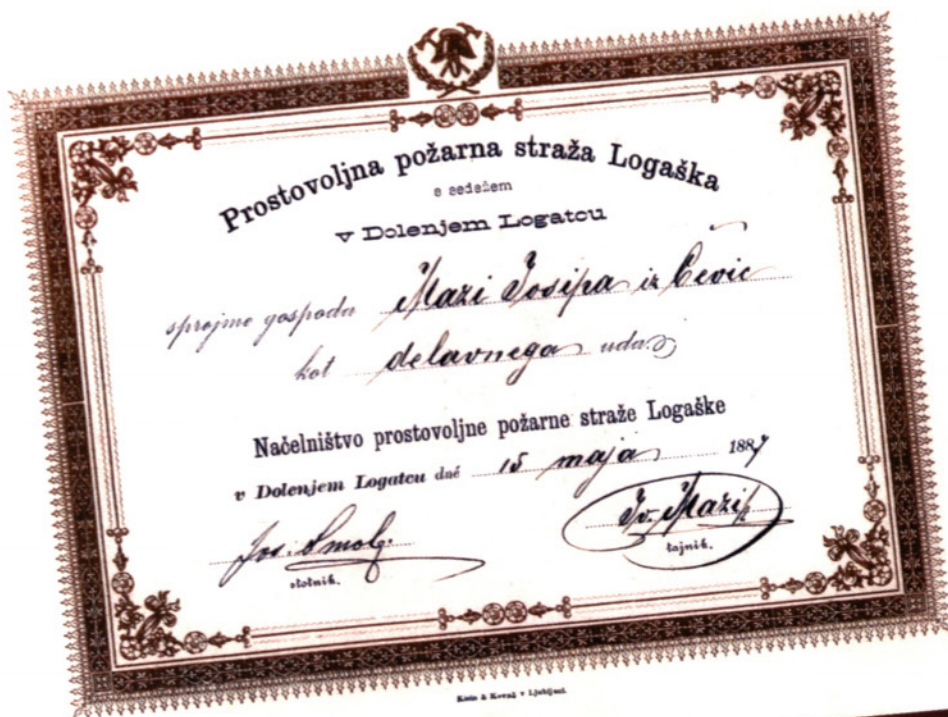 Prostovoljna požarna straža Logaška
s sedežem
v Dolenjem Logatcu
sprejme gospoda Mazi Josipa iz Čevic
kot delavnega uda.
Načelništvo prostovoljne požarne straže Logaške
v Dolenjem Logatcu dné 15 maja 1887
Jos. Smole. Iv. Mazi
stotnik. tajnik.
v Ljubljani.